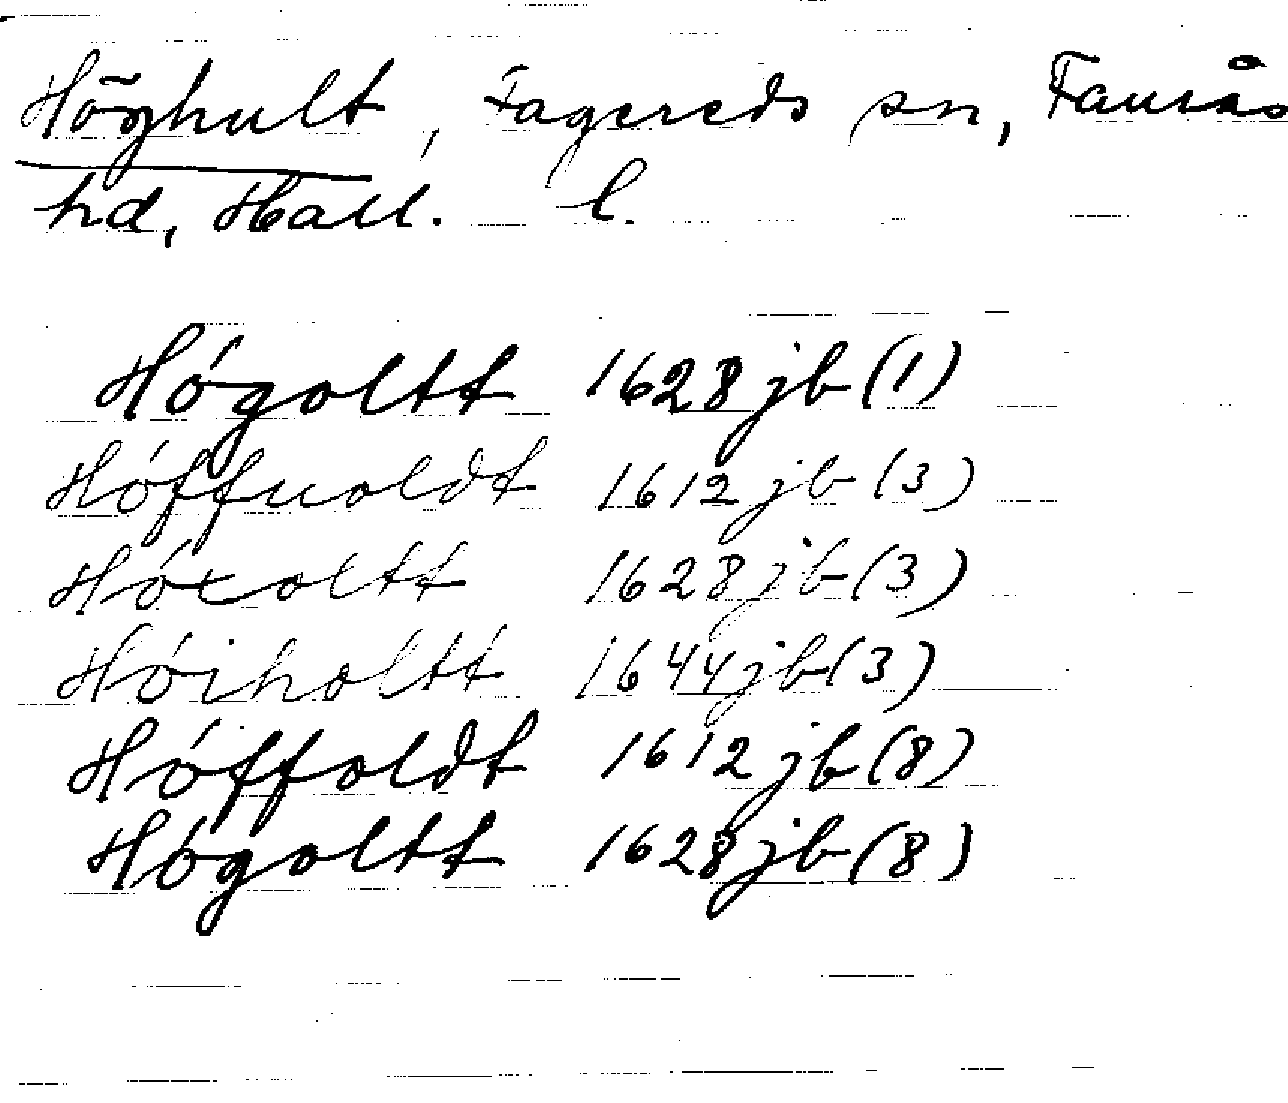 Höghult, Fagereds sn, Faurås
hd, Hall. l.
Hógoltt 1628 jb (1)
Hóffuoldt 1612 jb (3)
Hóxoltt 1628 jb (3)
Hóiholtt 1644 jb (3)
Hóffoldt 1612 jb (8)
Hógoltt 1628 jb (8)